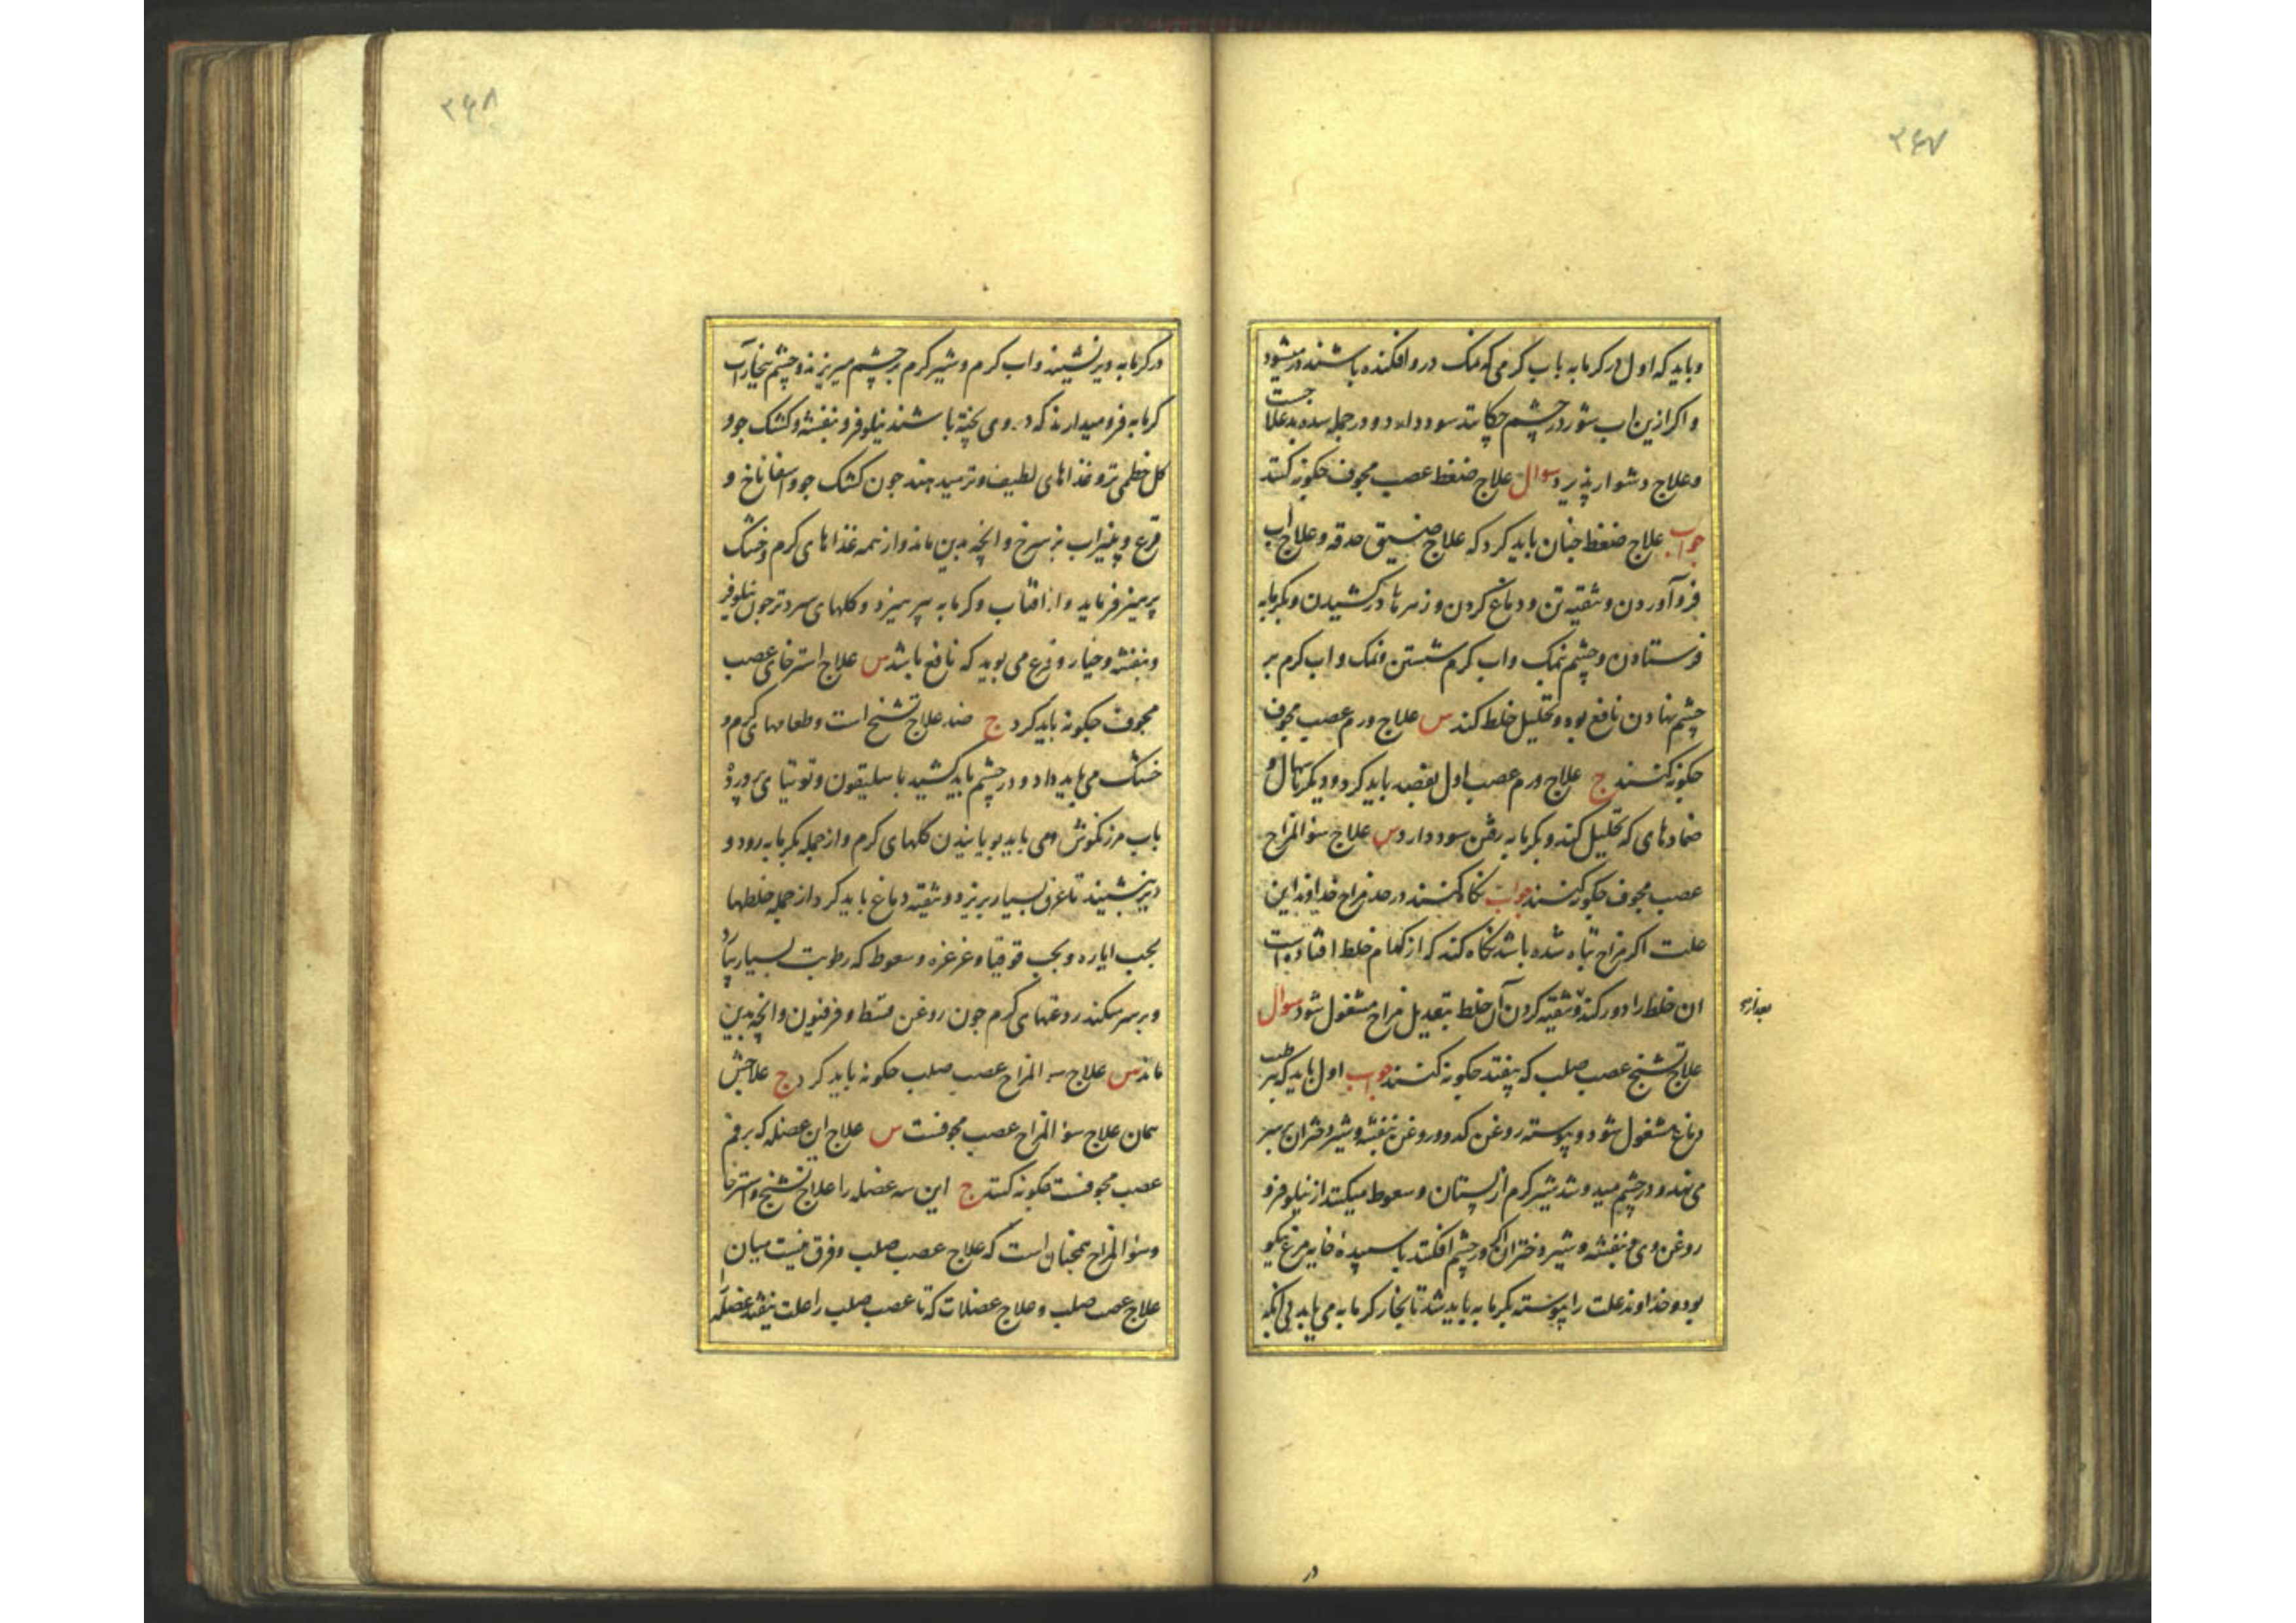 ۲۶۷
و باید که اول در کرمابه باب کرمی که نمک درو افکنده باشند در میشود
و اکر ازین اب شور در چشم چکانند سود دارد و در جمله سده بد علاجست
و علاج دشوار پذیرد سوال علاج ضغط عصب مجوف چکونه کنند
جواب علاج ضغط چنان باید کرد که علاج ضیق حدقه و علاج اب
فرو آوردن و تنقیه تن و دماغ کردن و زهرها در کشیدن و بکرمابه
فرستادن و چشم بنمک و اب کرم شستن و نمک و اب کرم بر
چشم نهادن نافع بود و تحلیل خلط کند س علاج ورم عصب مجوف
چکونه کنند ج علاج ورم عصب اول بفصد باید کرد و دیکر باسهال و
ضمادهای که تحلیل کند و بکرمابه رفتن سود دارد س علاج سؤ المزاج
عصب مجوف چکونه کنند جواب نکاه کنند در حد مزاج خداوند این
علت اکر مزاج تباه شده باشد نکاه کند که از کدام خلط افتاده است
ان خلط را دور کند و تنقیه کردن آن خلط بتعدیل مزاج مشغول شود سوال
بعد از
علاج تشنج عصب صلب که بیفتد چکونه کنند جواب اول باید که بتر طیب
دماغ مشغول شود و پیوسته روغن کدو و روغن بنفشه و شیر دختران بر سر
می نهد و در چشم میدوشد شیر کرم از پستان و سعوط میکند از نیلوفر و
روغن وی و بنفشه و شیر دختران اکر در چشم افکند با سپیده خایه مرغ نیکو
بود و خداوند علت را پیوسته بکرمابه باید شد تا بخار کرمابه می یابد بی انکه
در
۲۶۸
در کرمابه دیر نشیند و اب کرم و شیر کرم بر چشم میریزند و چشم ببخار آب
کرمابه فرو میدارند که در وی پخته باشند نیلوفر و بنفشه و کشک جو و
کل خطمی تر و غذاهای لطیف و تر میدهند چون کشک جو و اسفاناخ و
قرع و پنیراب بز سرخ و انچه بدین ماند و از همه غذاهای کرم و خشک
پرهیز فرماید و از افتاب و کرمابه پرهیزد و کلهای سرد تر چون نیلوفر
و بنفشه و خیار و قرع می بوید که نافع باشد س علاج استرخای عصب
مجوف چکونه باید کرد ج ضد علاج تشنج است و طعامهای کرم و
خشک می باید داد و در چشم باید کشید باسلیقون و توتیای پرورده
باب مرزنکوش و می باید بویانیدن کلهای کرم و از جمله بکرمابه رود و
دیر بنشیند تا عرق بسیار بریزد و تنقیه دماغ باید کرد از جمله خلطها
بحب ایاره و بحب قوقیا و غرغره و سعوط که رطوبت بسیار بیآرد
و بر سر میکند روغنهای کرم چون روغن قسط و فرفیون و انچه بدین
ماند س علاج سؤ المزاج عصب صلب چکونه باید کرد ج علاجش
همان علاج سؤ المزاج عصب مجوفست س علاج ان عضله که بر فم
عصب مجوفست چکونه کنند ج این سه عضله را علاج تشنج و استرخا
و سؤ المزاج همچنان است که علاج عصب صلب و فرق نیست میان
علاج عصب صلب و علاج عضلات که تا عصب صلب را علت نیفتد عضله را